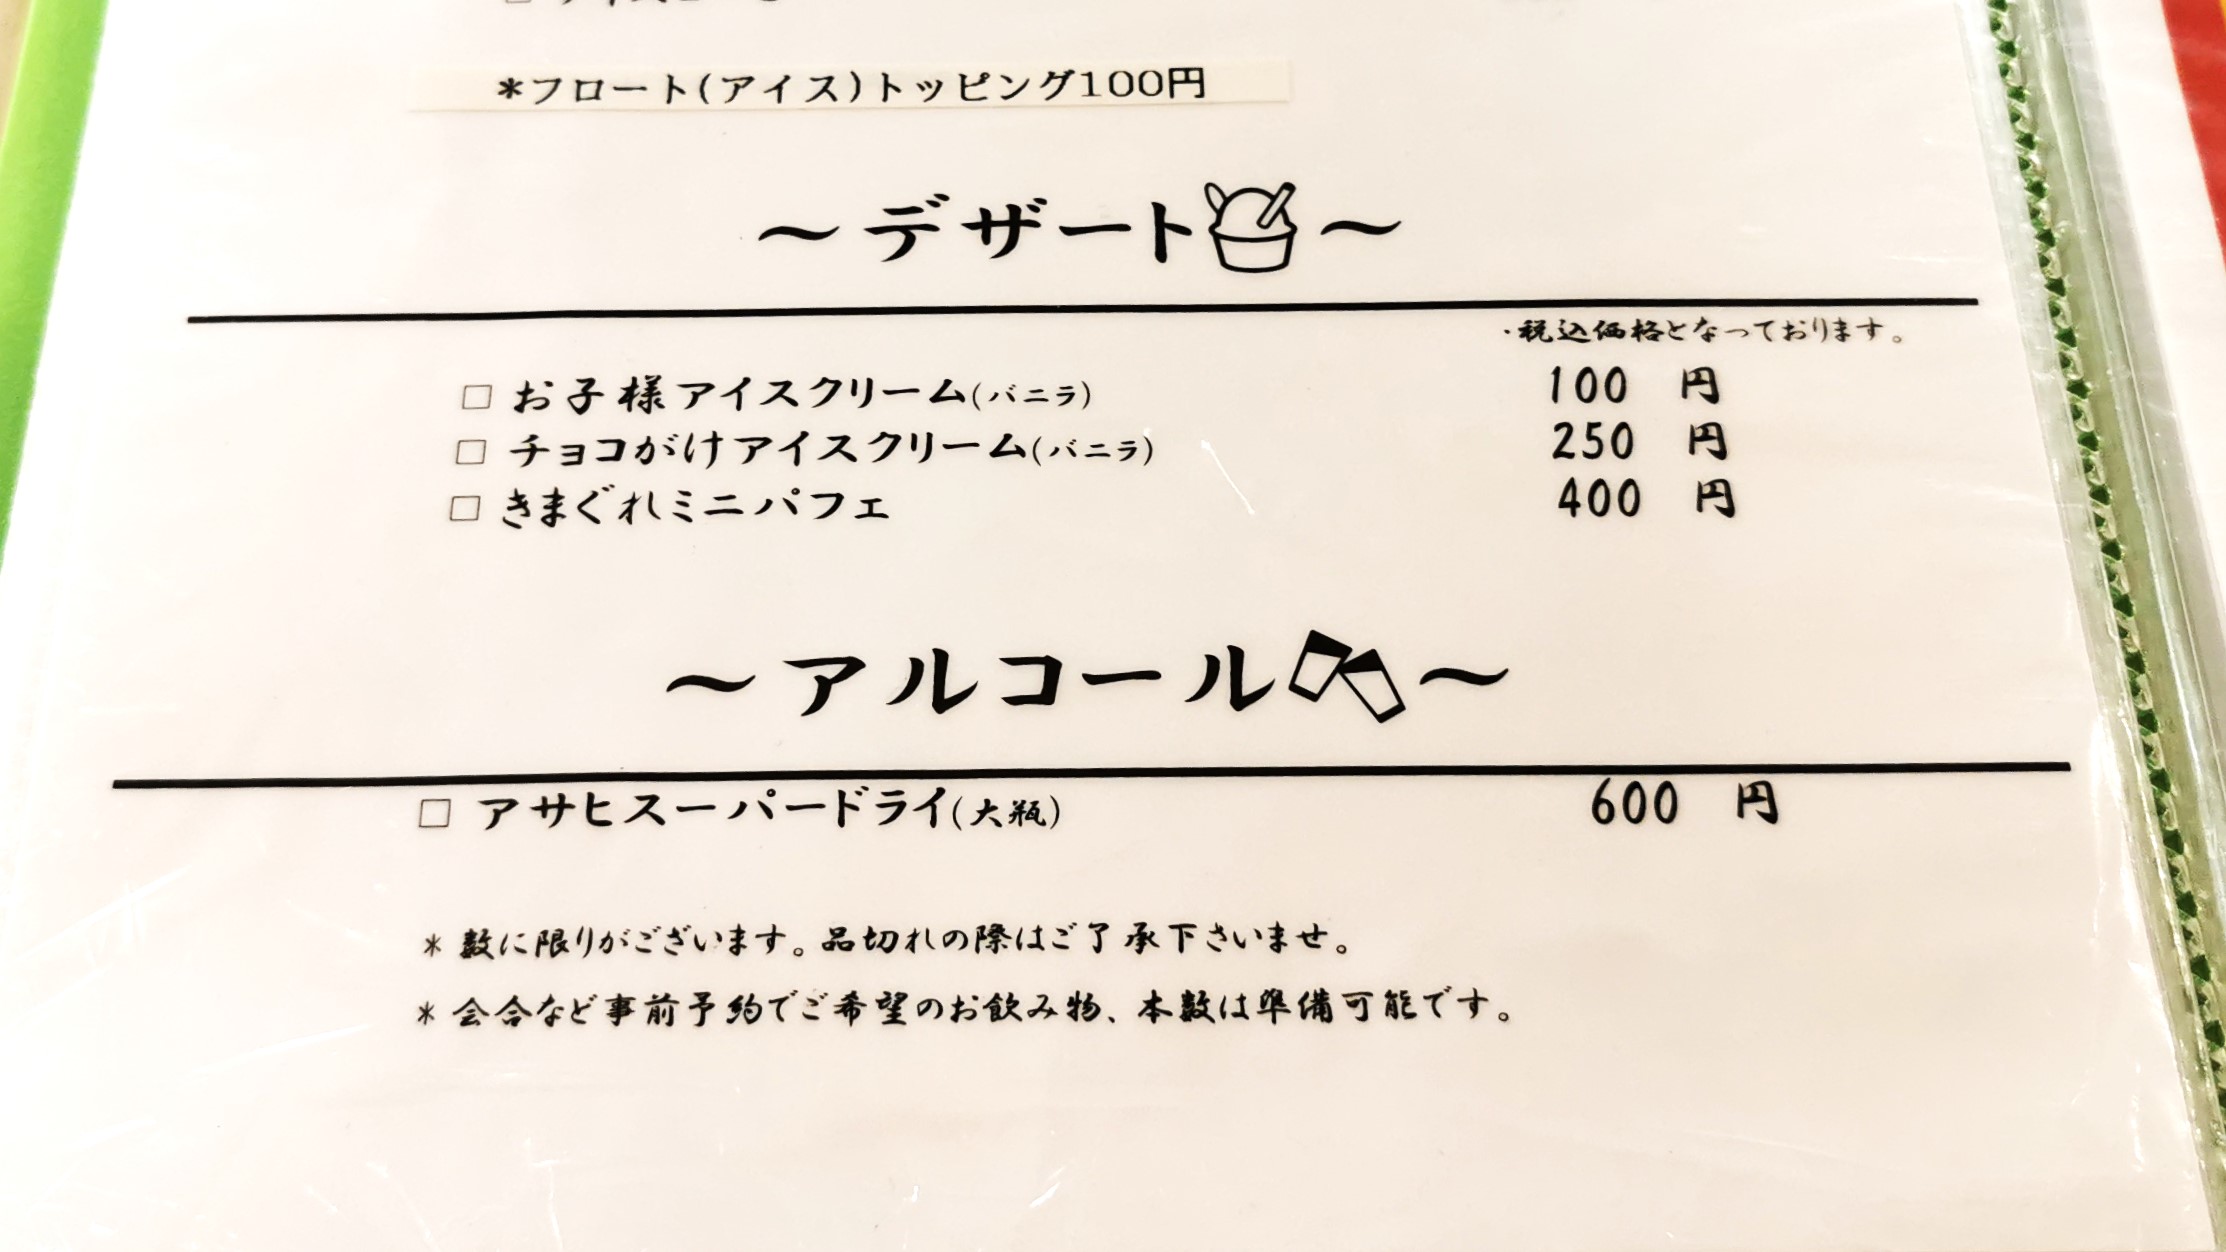 *フロート(アイス)トッピング100円
～デザート～
・税込価格となっております。
□ お子様アイスクリーム(バニラ) 100 円
□ チョコがけアイスクリーム(バニラ) 250 円
□ きまぐれミニパフェ 400 円
～アルコール～
□ アサヒスーパードライ(大瓶) 600 円
* 数に限りがございます。品切れの際はご了承下さいませ。
* 会合など事前予約でご希望のお飲み物、本数は準備可能です。